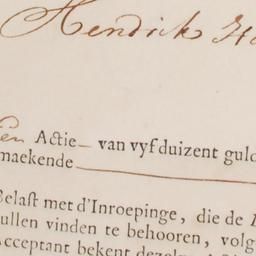 Hendrick
Een Actie van vyf duizent guld
maekende
Belast met d'Inroepinge, die de
ullen vinden te behooren, volg
Acceptant bekent dezelve